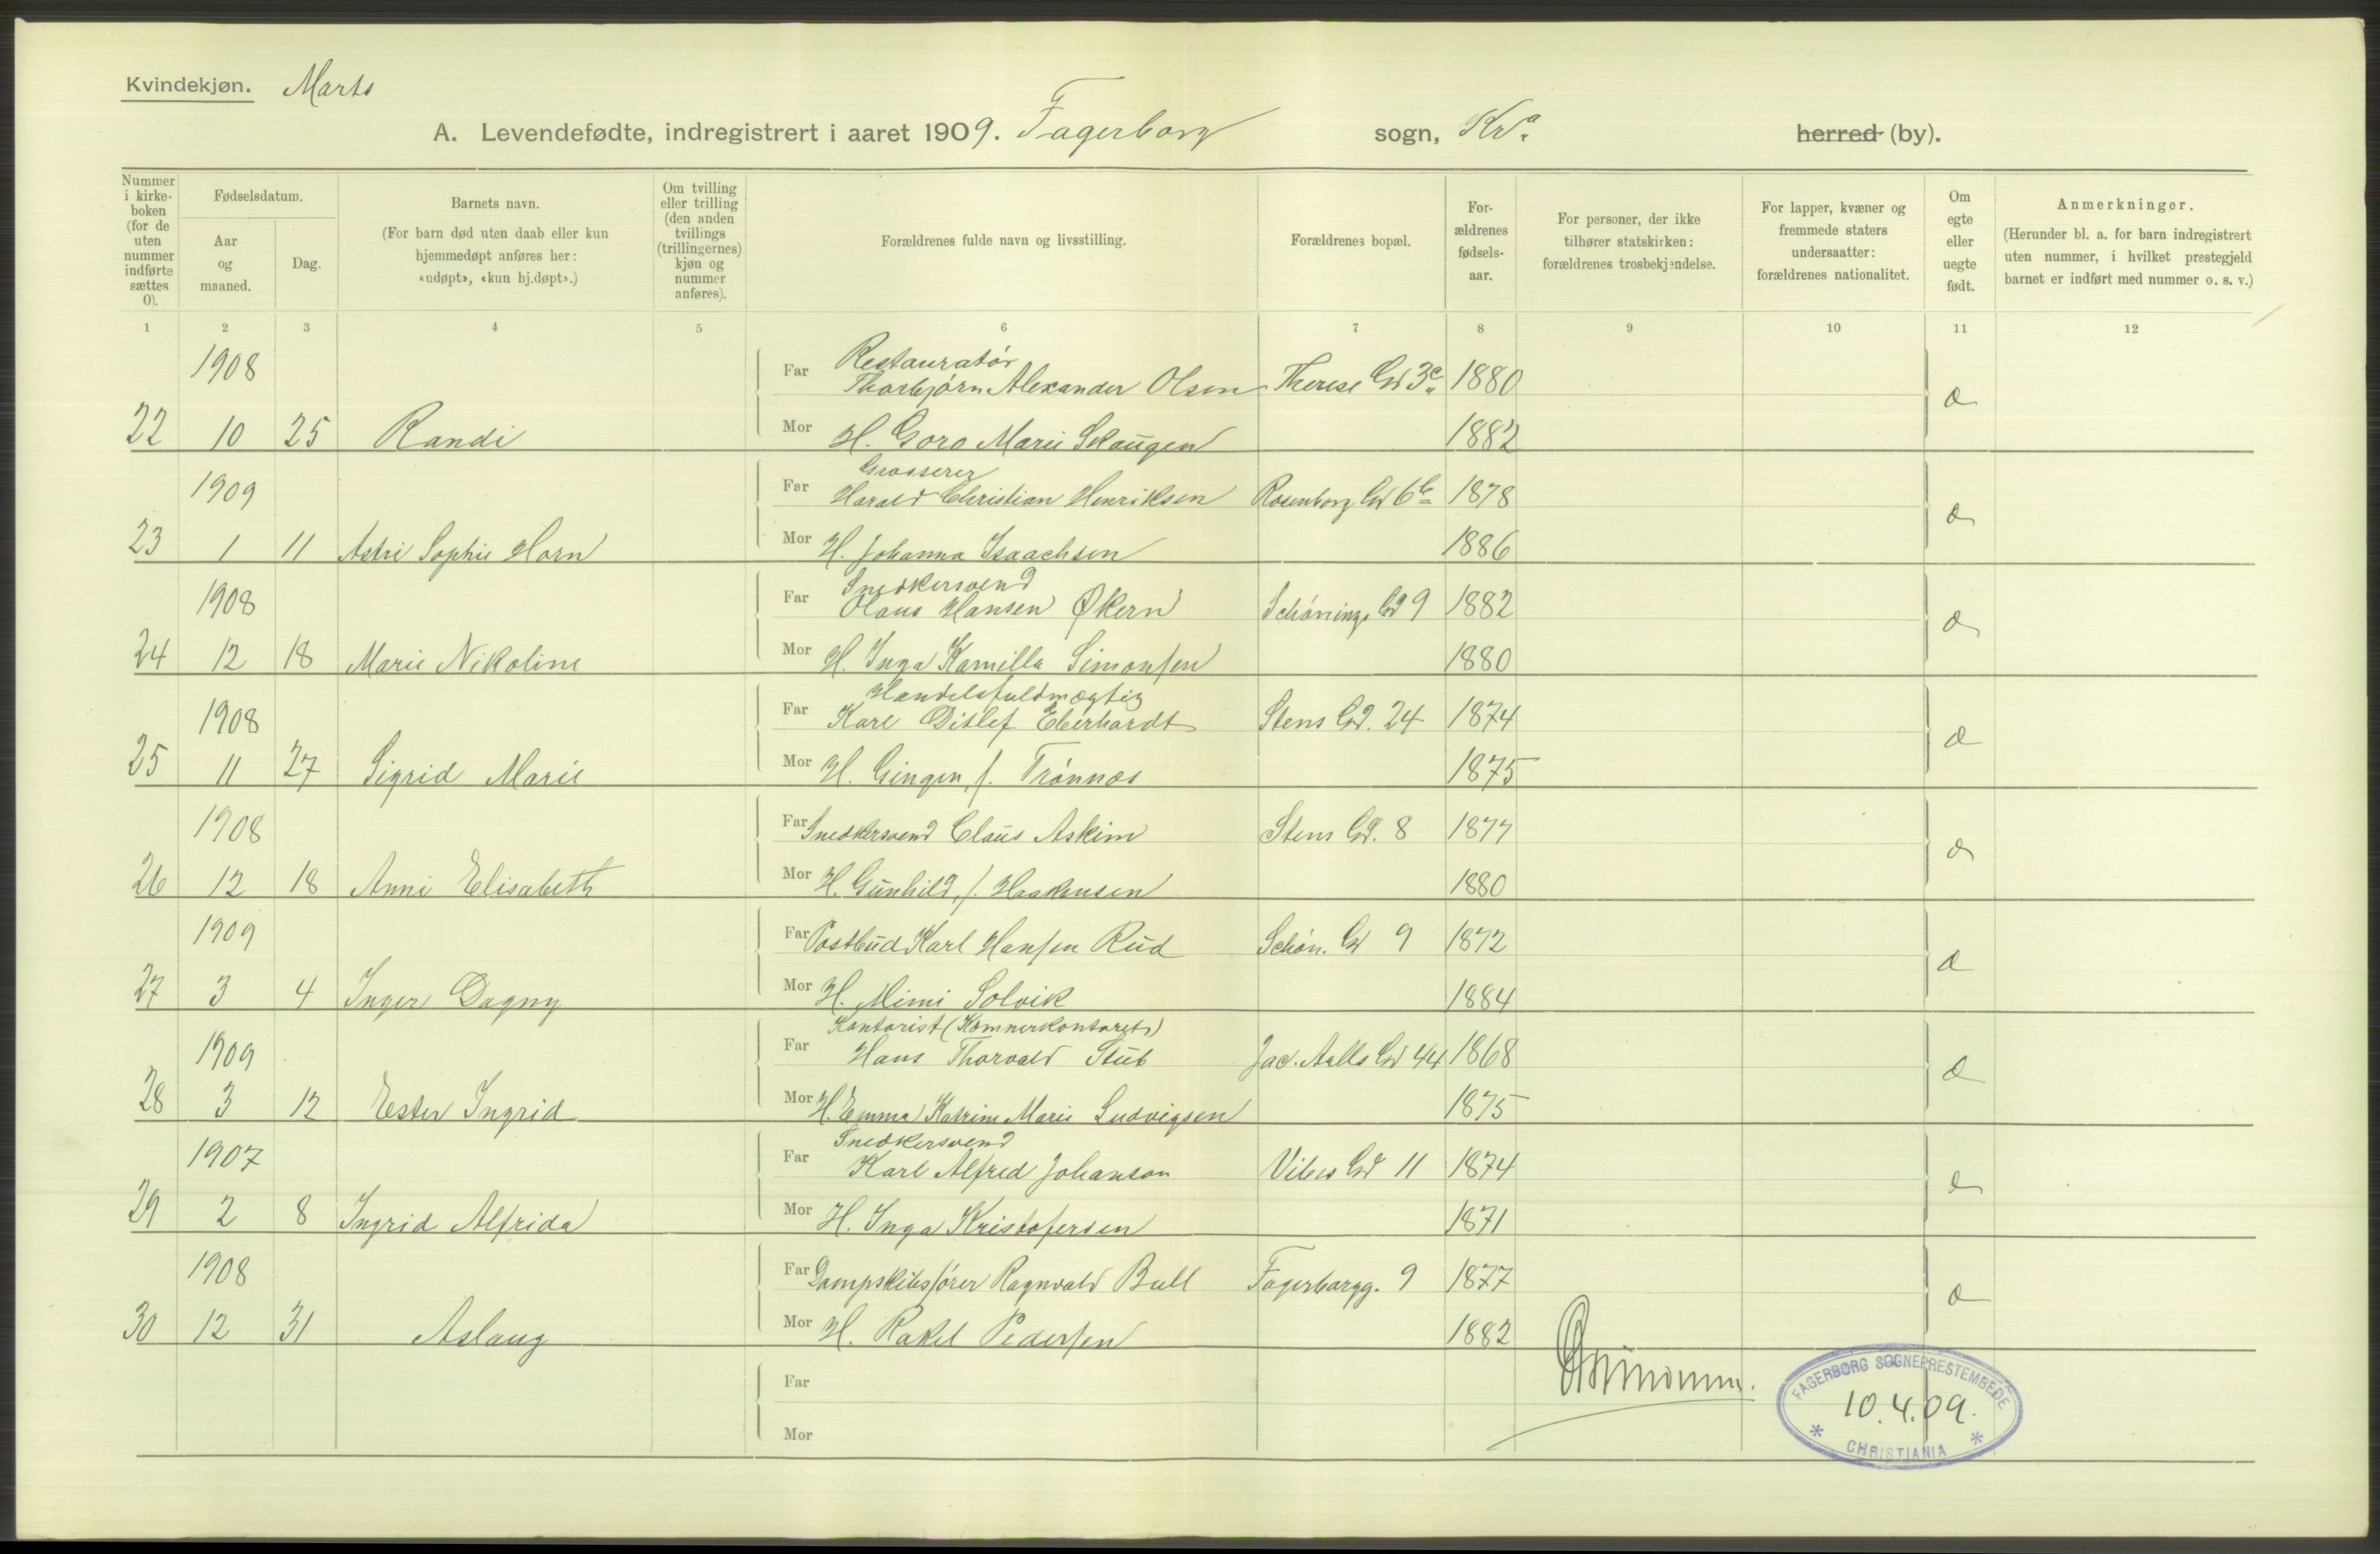 Kvindekjøn. Marts
A. Levendefødte, indregistrert i aaret 1909. Fagerborg sogn, Kr.a herred (by).
Nummer i kirkeboken (for de uten nummer indførte sættes 0).
Fødselsdatum.
Aar og maaned.
Dag.
Barnets navn.
(For barn død uten daab eller kun hjemmedøpt anføres her: «udøpt», «kun hj.døpt».)
Om tvilling eller trilling (den anden tvillings (trillingernes) kjøn og nummer anføres).
Forældrenes fulde navn og livsstilling.
Forældrenes bopæl.
Forældrenes fødselsaar.
For personer, der ikke tilhører statskirken: forældrenes trosbekjendelse.
For lapper, kvæner og fremmede staters undersaatter: forældrenes nationalitet.
Om egte eller uegte født.
Anmerkninger.
(Herunder bl. a. for barn indregistrert uten nummer, i hvilket prestegjeld barnet er indført med nummer o. s. v.)
1 2 3 4 5 6 7 8 9 10 11 12
1908 Far Restauratør
Thorbjørn Alexander Olsen Therese Gd 3c 1880
22 10 25 Randi Mor H. Goro Marie Skaugen 1882 æ
1909 Far Grosserer
Harald Christian Henriksen Rosenborg Gd 6b 1878
23 1 11 Astri Sophie Horn Mor H. Johanna Isaachsen 1886 æ
1908 Far Snedkersvend
Olaus Hansen Økern Schønings Gd 9 1882
24 12 18 Marie Nikoline Mor H. Inga Kamilla Simonsen 1880 æ
1908 Far Handelsfuldmægtig
Karl Ditlef Eberhardt Stens Gd. 24 1874
25 11 27 Sigrid Marie Mor H. Gingen, f. Trønnæs 1875 æ
1908 Far Snedkersvend Claus Askim Stens Gd. 8 1877
26 12 18 Anni Elisabeth Mor H. Gunhild, f. Haakensen 1880 æ
1909 Far Postbud Karl Hansen Rud Schøn. Gd 9 1872
27 3 4 Inger Dagny Mor H. Mimi Solvik 1884 æ
1909 Far Kontorist (Kæmnerkontoret)
Hans Thorvald Stub Jac. Aalls Gd 44 1868
28 3 12 Ester Ingrid Mor H. Emma Katrine Marie Ludvigsen 1875 æ
1907 Far Snedkersvend
Karl Alfred Johanson Vibes Gd 11 1874
29 2 8 Ingrid Alfrida Mor H. Inga Kristofersen 1871 æ
1908 Far Dampskibsfører Ragnvald Bull Fagerborgg. 9 1877
30 12 31 Aslaug Mor H. Rakel Pedersen 1882 æ
Far
Mor
FAGERBORG SOGNEPRESTEMBEDE
10.4.09.
* CHRISTIANIA *